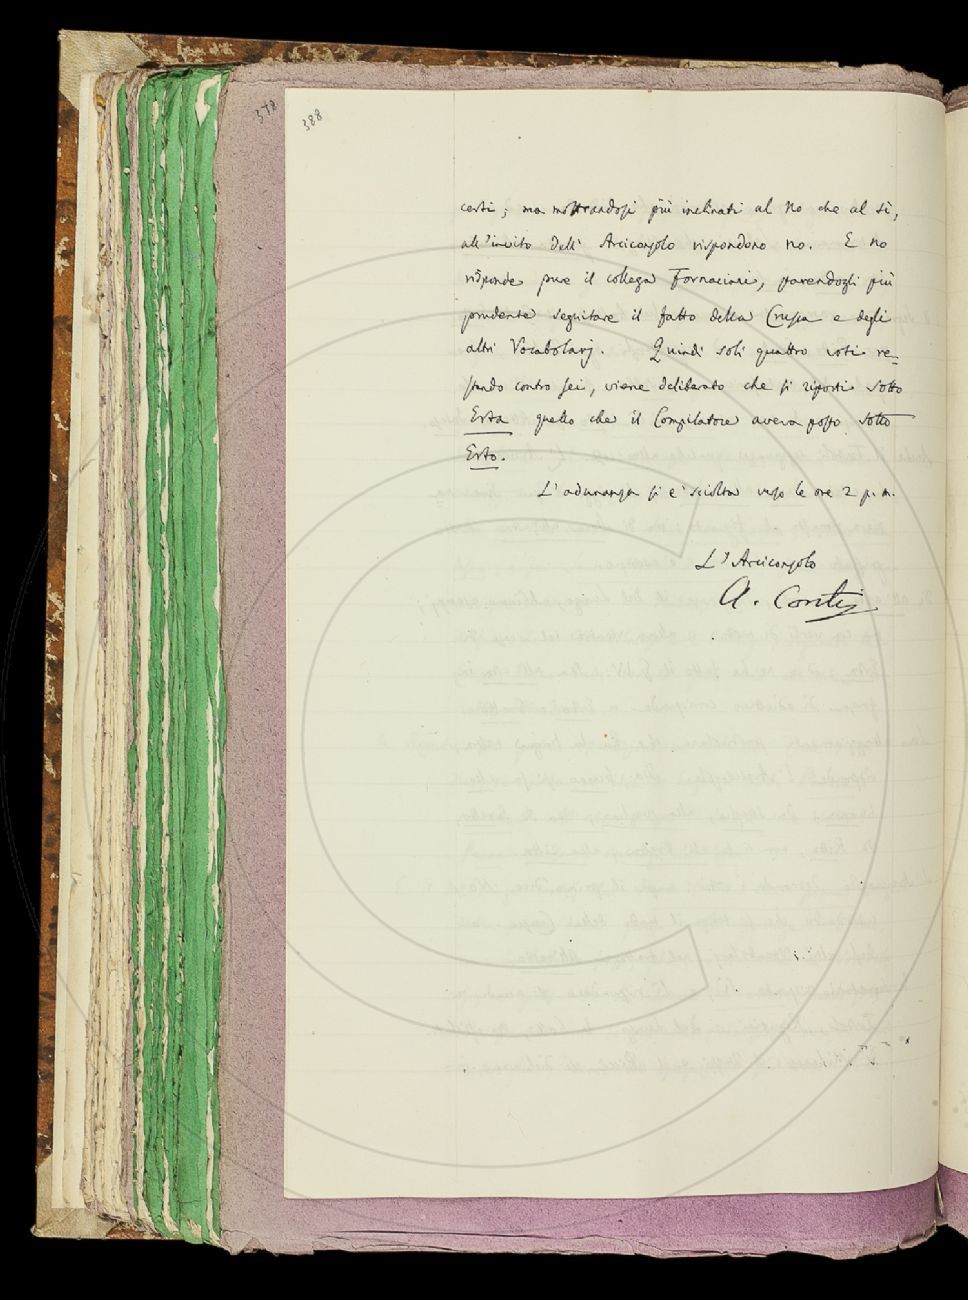 378
388
certi; ma mostrandosi più inclinati al No che al sì,
all'invito dell' Arciconsolo rispondono no. E no
risponde pure il collega Fornaciari, parendogli più
prudente seguitare il fatto della Crusca e degli
altri Vocabolarj. Quindi soli quattro voti re-
stando contro sei, viene deliberato che si riporti sotto
Erta quello che il Compilatore aveva posto sotto
Erto.
L'adunanza si è sciolta verso le ore 2 p. m.
L'Arciconsolo
A. Conti